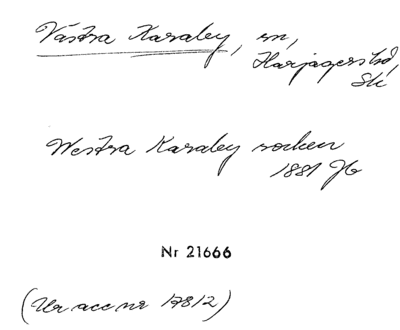 Västra Karaby, sn,
Harjagers hd,
Sk
Westra Karaby socken
1881 Jb
Nr 21666
(Ur acc nr 17812)